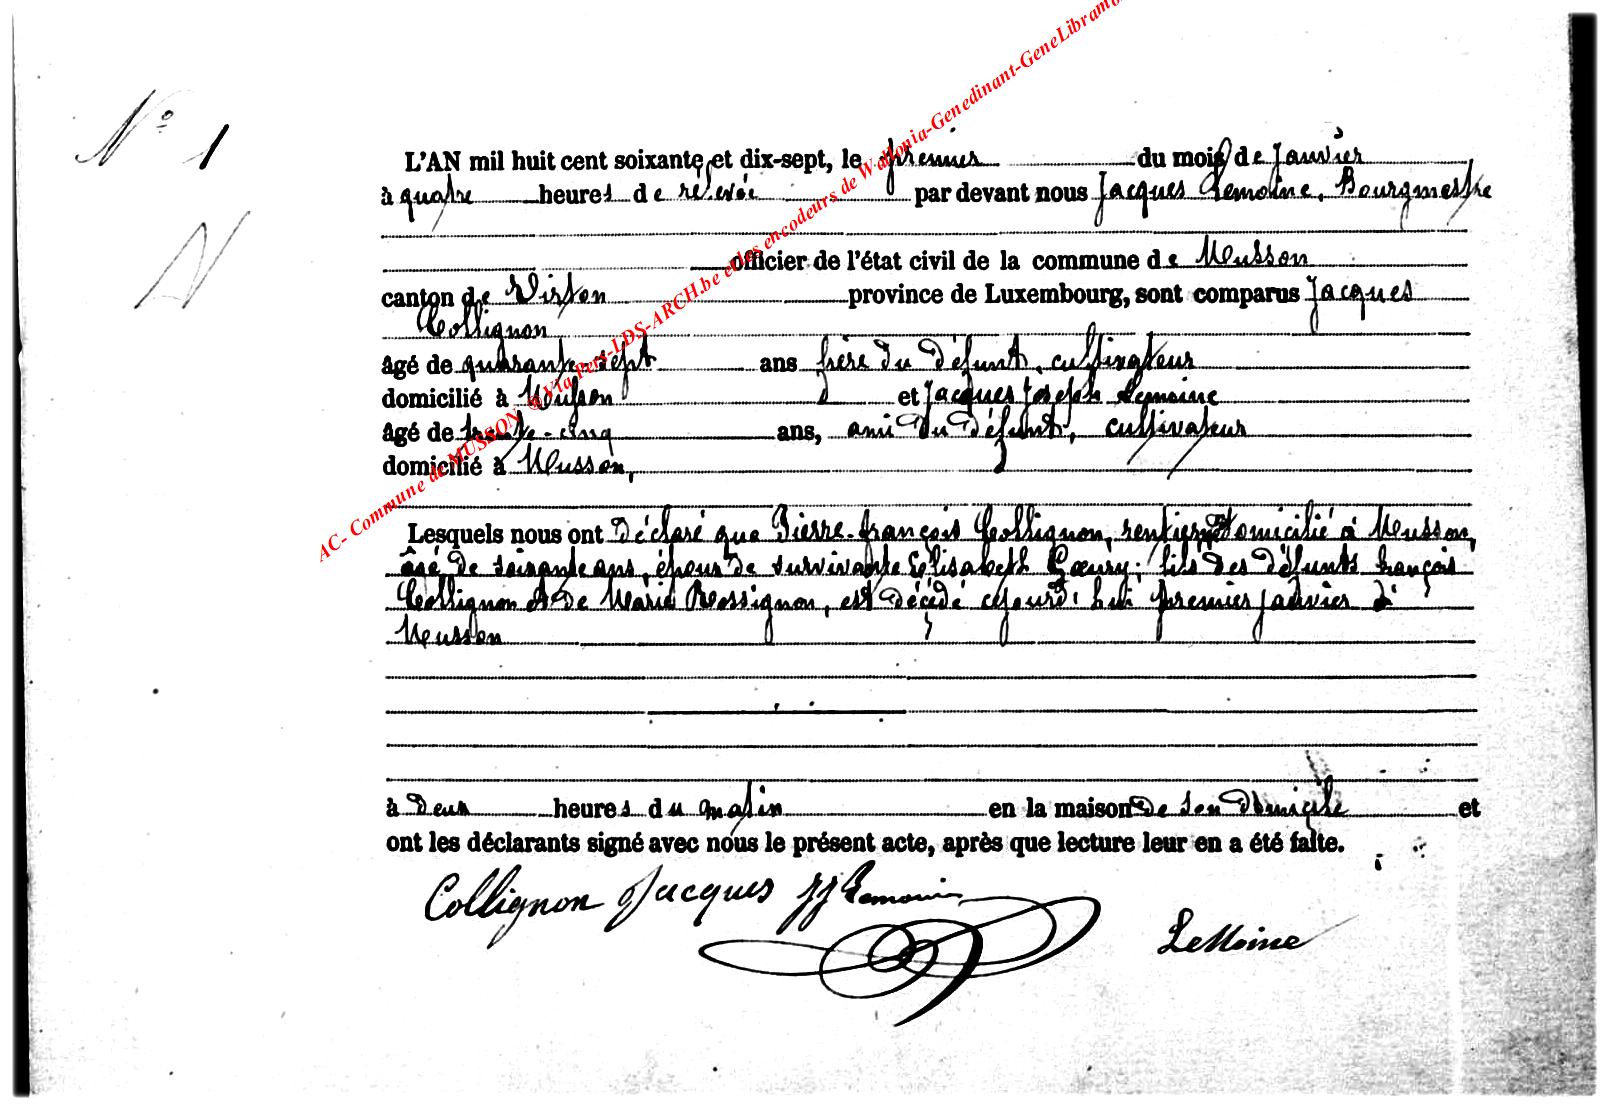 N° 1
N
L'AN mil huit cent soixante et dix-sept, le premier du mois de Janvier
à quatre heures de relevée par devant nous Jacques Lemoine, Bourgmestre
officier de l'état civil de la commune de Musson
canton de Virton province de Luxembourg, sont comparus Jacques
Collignon
âgé de quarante-sept ans frère du défunt, cultivateur
domicilié à Musson et Jacques Joseph Lemoine
âgé de trente-cinq ans, ami du défunt, cultivateur
domicilié à Musson,
Lesquels nous ont déclaré que Pierre-françois Collignon, rentier, domicilié à Musson,
âgé de soixante ans, époux de survivante Elisabeth Goeury; fils des défunts françois
Collignon et de Marie Rossignon, est décédé cejourd'hui premier janvier à
Musson
à deux heures du matin en la maison de son domicile et
ont les déclarants signé avec nous le présent acte, après que lecture leur en a été faite.
Collignon Jacques JJ Lemoine
LeMoine
AC- Commune de MUSSON @Via Pers-LDS-ARCH.be et les encodeurs de Wallonia-Genedinant-GeneLibramo